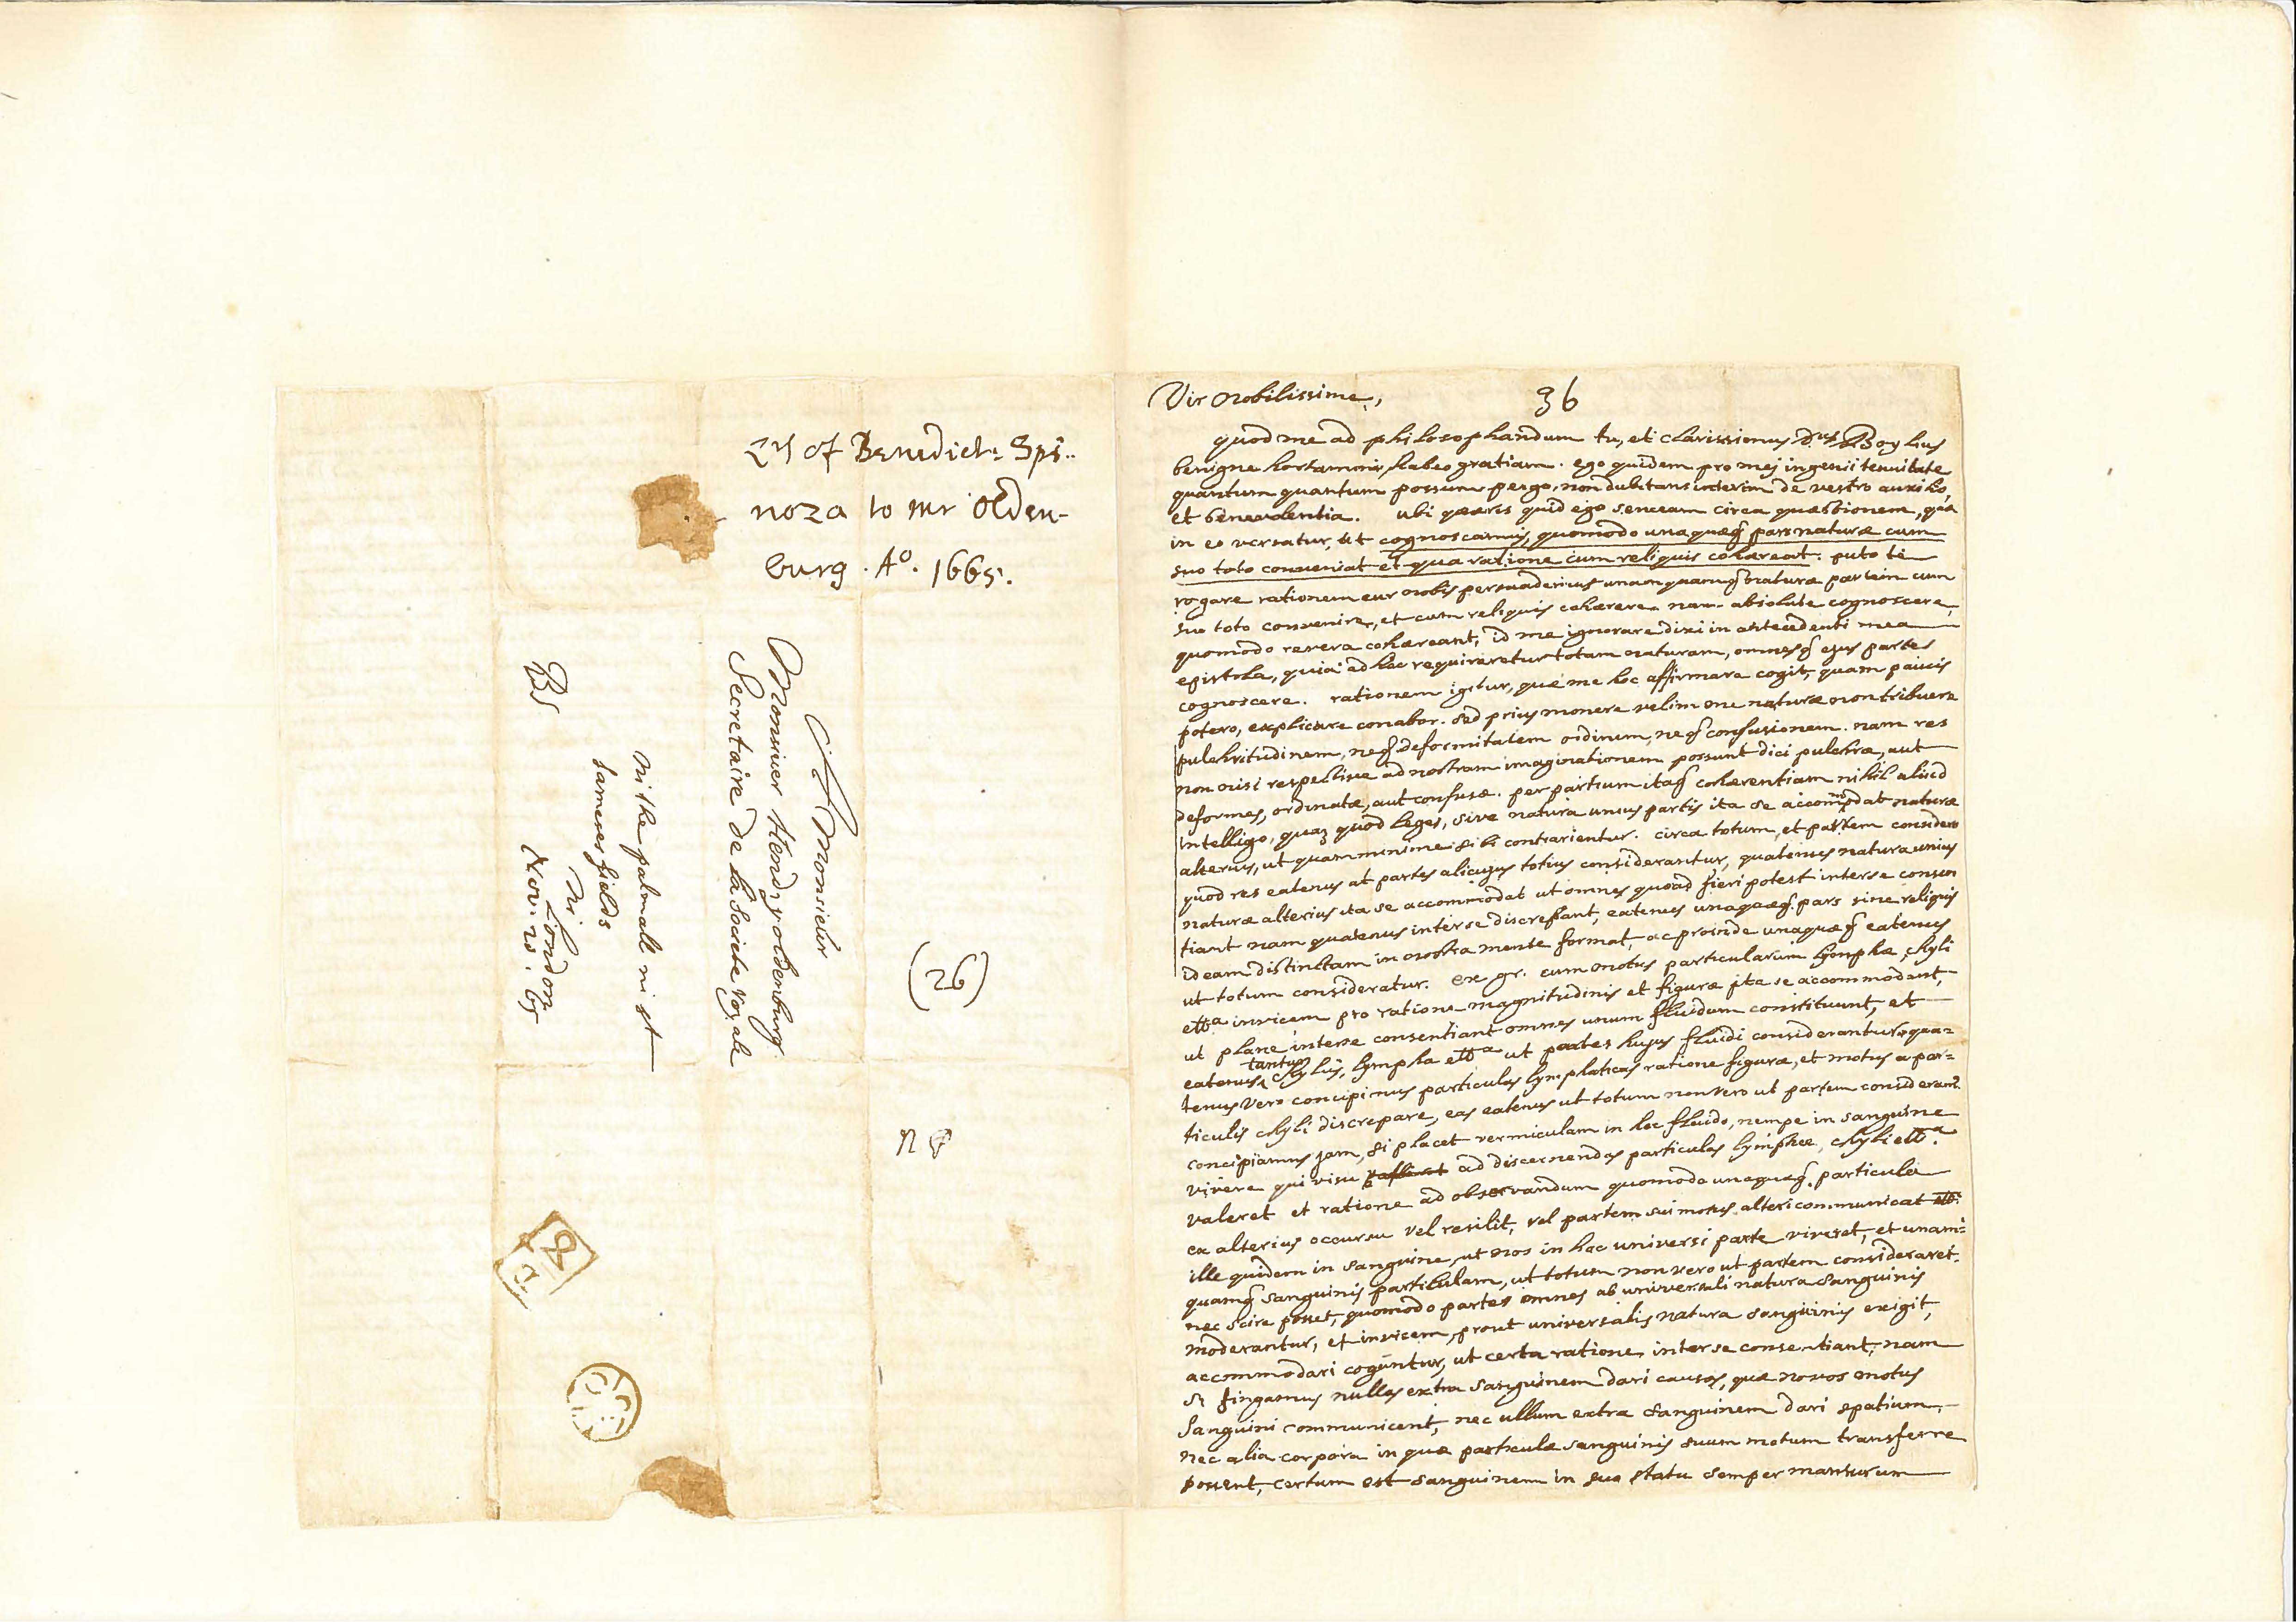 Lr of Benedict: Spi..
noza to mr Olden-
burg. A°. 1665.
Monsieur
Monsieur Henry oldenburg
Secretaire de la Societe royale
in the palmall in st
Jameses fields
in London
BS
Nov. 20. 65
(26)
36
Vir nobilissime,
quod me ad philosophandum tu, et clarissimus Dus Boylius
benigne hortamini, habeo gratiam. ego quidem pro mej ingenii tenuitate
quantum quantum possum pergo, non dubitans interim de vestro auxilio,
et benevolentia. ubi quæris quid ego sentiam circa quæstionem, quæ
in eo versatur, ut cognoscamus, quomodo unaquæq pars naturæ cum
suo toto conveniat et qua ratione cum reliquis cohæreat. puto te
rogare rationem cur nobis persuademus unamquamq naturæ partem cum
suo toto convenire, et cum reliquis cohærere. nam absolute cognoscere,
quomodo revera cohæreant, id me ignorare dixi in antecedenti mea
epistola, quia ad hoc requireretur totam naturam, omnesq ejus partes
cognoscere. rationem igitur, quæ me hoc affirmare cogit, quam paucis
potero, explicare conabor. sed prius monere velim me naturæ non tribuere
pulchritudinem, neq deformitatem ordinem, neq confusionem. nam res
non nisi respective ad nostram imaginationem possunt dici pulchræ, aut
deformes, ordinatæ, aut confusæ. per partium itaq cohærentiam nihil aliud
intelligo, quam quod leges, sive natura unius partis ita se accommodat naturæ
alterius, ut quam minime sibi contrarientur. circa totum, et partem considero
quod res eatenus ut partes alicujus totius considerantur, quatenus natura unius
naturæ alterius ita se accommodat ut omnes quoad fieri potest inter se consen
tiant nam quatenus inter se discrepant, eatenus unaquæq pars sine reliquis
ideam distinctam in nostra mente format, ac proinde unaquæq eatenus
ut totum consideratur. ex. gr. cum motus particularum lymphæ, chyli
etta invicem pro ratione magnitudinis et figuræ ita se accommodant,
ut plane inter se consentiant omnes unum fluidum constituunt, et
eatenus tantum chylus, lympha etta ut partes hujus fluidi considerantur, qua=
tenus vero concipimus particulas lymphaticas ratione figuræ, et motus a par=
ticulis chyli discrepare, eas eatenus ut totum non vero ut partem consideramus.
concipiamus jam, si placet vermiculum in hoc fluido, nempe in sanguine
vivere qui visu ad discernendas particulas lymphæ, chyli etta.
valeret et ratione ad observandum quomodo unaquæq particula
ex alterius occursu vel resilit, vel partem sui motus alteri communicat etc.
ille quidem in sanguine, ut nos in hac universi parte viveret, et unam=
quamq sanguinis particulam, ut totum non vero ut partem consideraret.
nec scire posset, quomodo partes omnes ab universali natura sanguinis
moderantur, et invicem, prout universalis natura sanguinis exigit,
accommodari coguntur, ut certa ratione inter se consentiant, nam
si fingamus nullas extra sanguinem dari causas, quæ novos motus
sanguini communicent, nec ullum extra sanguinem dari spatium,
nec alia corpora in quæ particulæ sanguinis suum motum transferre
possent, certum est sanguinem in suo statu semper mansurum